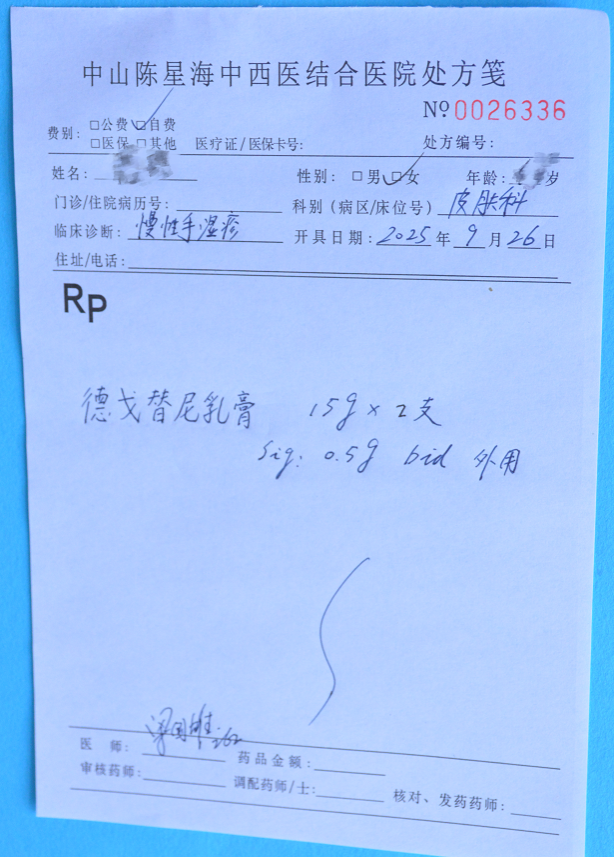 中山陈星海中西医结合医院处方笺
Nº 0026336
费别: □公费 □自费
□医保 □其他 医疗证/医保卡号: 处方编号:
姓名: 性别: □男 □女 年龄: 岁
门诊/住院病历号: 科别(病区/床位号) 皮肤科
临床诊断: 慢性手湿疹 开具日期: 2025 年 9 月 26 日
住址/电话:
Rp
德戈替尼乳膏 15g × 2支
Sig: 0.5g bid 外用
医 师: 药品金额:
审核药师: 调配药师/士: 核对、发药药师: